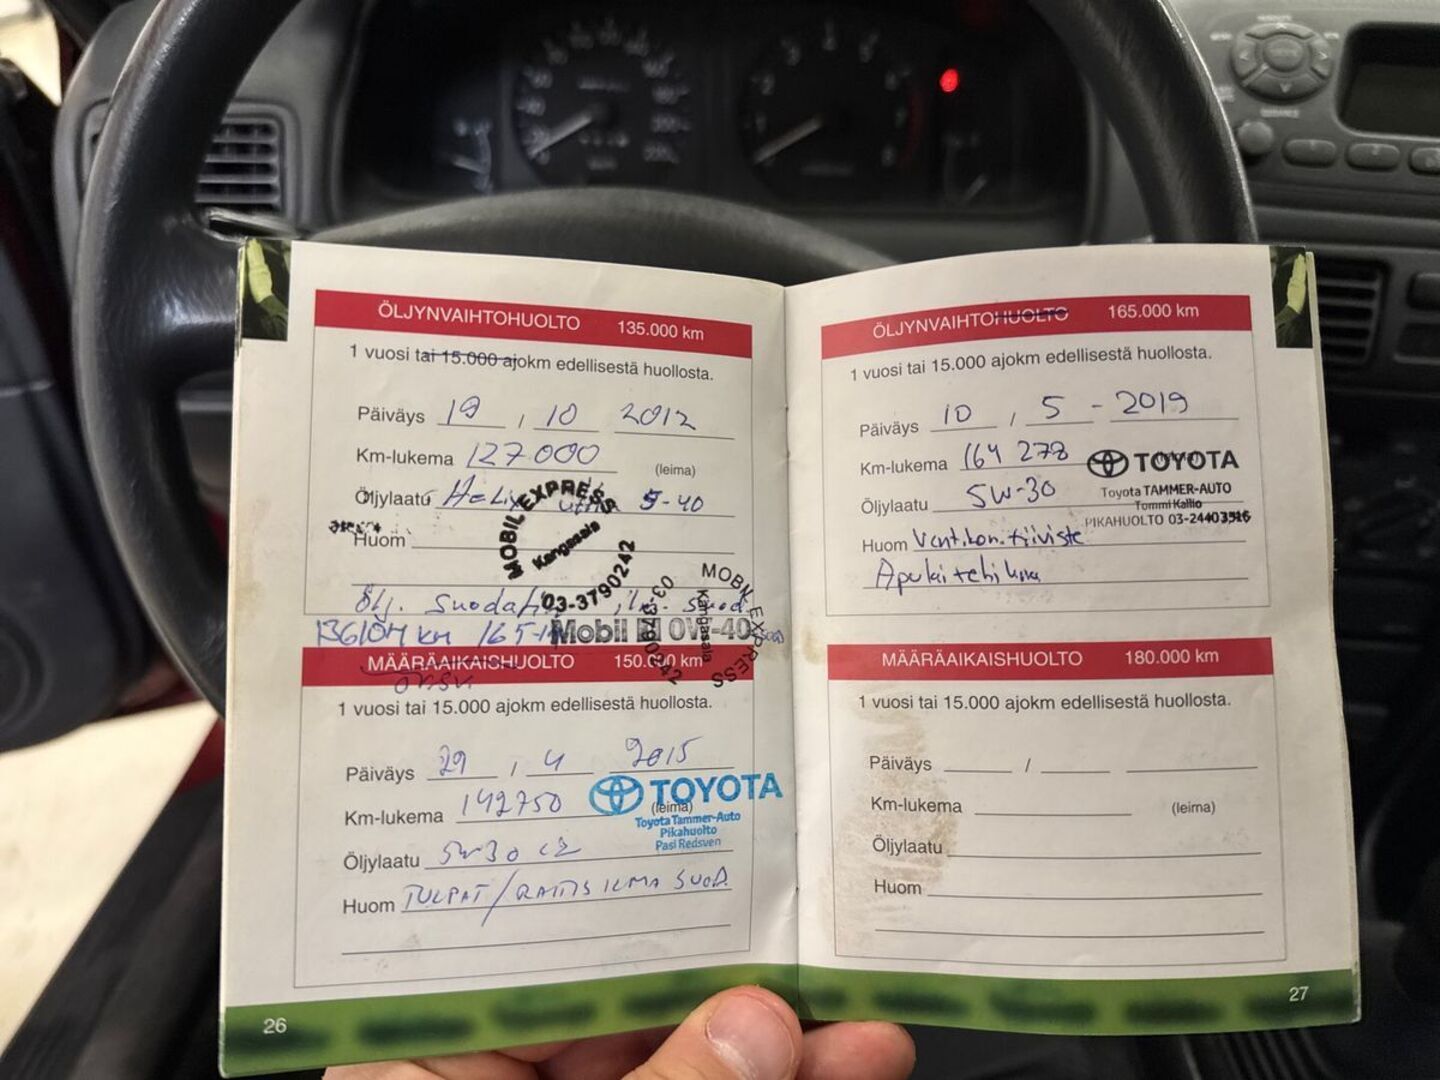 ÖLJYNVAIHTOHUOLTO 135.000 km
1 vuosi tai 15.000 ajokm edellisestä huollosta.
Päiväys 19 / 10 2012
Km-lukema 127000 (leima)
Öljylaatu Helix 5-40
Huom
MOBIL EXPRESS
Kangasala
03-3790242
Ölj. suodatin, ilm. suod.
136104 km 165-14
Mobil 1 0W-40
MOBIL EXPRESS
Kangasala
03-3790242
MÄÄRÄAIKAISHUOLTO 150.000 km
1 vuosi tai 15.000 ajokm edellisestä huollosta.
Päiväys 29 / 4 2015
Km-lukema 142750 (leima)
TOYOTA
Toyota Tammer-Auto
Pikahuolto
Pasi Redsven
Öljylaatu 5W30 C2
Huom TULPAT / RAITIS ILMA SUOD.
26
ÖLJYNVAIHTOHUOLTO 165.000 km
1 vuosi tai 15.000 ajokm edellisestä huollosta.
Päiväys 10 / 5 - 2019
Km-lukema 164 278
TOYOTA
Toyota TAMMER-AUTO
Tommi Kallio
PIKAHUOLTO 03-24403516
Öljylaatu 5W-30
Huom Vent.kon.tiiviste
Apulaitehihna
MÄÄRÄAIKAISHUOLTO 180.000 km
1 vuosi tai 15.000 ajokm edellisestä huollosta.
Päiväys /
Km-lukema (leima)
Öljylaatu
Huom
27